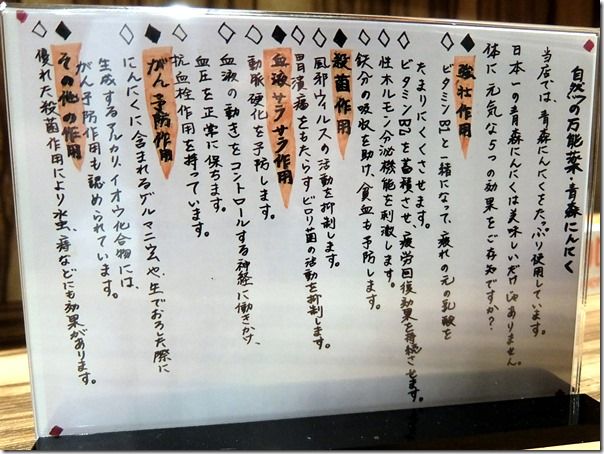 自然の万能薬・青森にんにく
当店では、青森にんにくをたっぷり使用しています。
日本一の青森にんにくは美味しいだけじゃありません。
体に元気な5つの効果をご存知ですか?
◆強壮作用
◇ビタミンB1と一緒になって、疲れの元の乳酸を
たまりにくくさせます。
◇ビタミンB1を蓄積させ、疲労回復効果を持続させます。
◇性ホルモン分泌機能を刺激します。
◇鉄分の吸収を助け、貧血も予防します。
◆殺菌作用
◇風邪ウィルスの活動を抑制します。
◇胃潰瘍をもたらすピロリ菌の活動を抑制します。
◇動脈硬化を予防します。
◆血液サラサラ作用
◇血液の動きをコントロールする神経に働きかけ、
血圧を正常に保ちます。
◇抗血栓作用を持っています。
◆がん予防作用
◇にんにくに含まれるゲルマニウムや、生でおろした際に
生成するアルカリ、イオウ化合物には、
がん予防作用も認められています。
◆その他の作用
◇優れた殺菌作用により水虫、痔などにも効果があります。